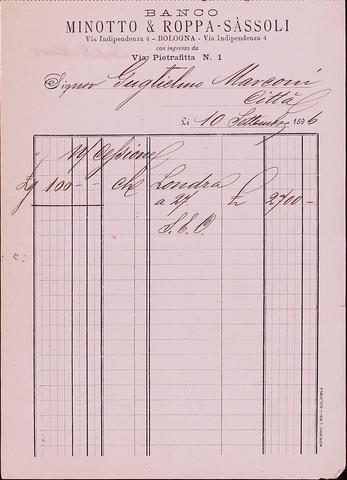 BANCO
MINOTTO & ROPPA-SÀSSOLI
Via Indipendenza 4 - BOLOGNA - Via Indipendenza 4
con ingresso da
Via Pietrafitta N. 1
Signor Guglielmo Marconi
Città
Li 10 Settembre 1896
Cessione
100 - - ch Londra
a 27. £ 2700 -
S. E. O.